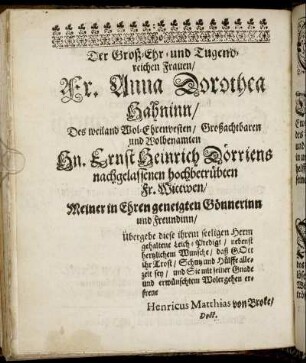 Der Groß-Ehr- und Tugend-
reichen Frauen/
Fr. Anna Dorothea
Hahninn/
Des weiland Wol-Ehrenvesten/ Großachtbaren
und Wolbenamten
Hn. Ernst Heinrich Dörriens
nachgelassenen hochbetrübten
Fr. Wittwen/
Meiner in Ehren geneigten Gönnerinn
und Freundinn/
Übergebe diese ihrem seeligen Herrn
gehaltene Leich-Predigt/ nebenst
hertzlichem Wunsche/ daß GOtt
ihr Trost/ Schutz und Hülffe alle-
zeit sey/ und Sie mit seiner Gnade
und erwünschtem Wolergehen er-
freue
Henricus Matthias von Broke/
Doct.